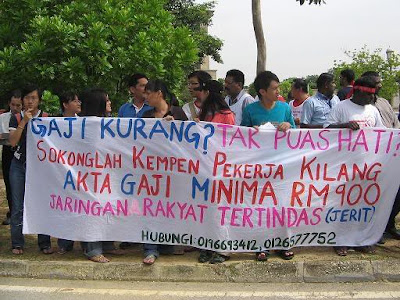 GAJI KURANG? TAK PUAS HATI?
SOKONGLAH KEMPEN PEKERJA KILANG
AKTA GAJI MINIMA RM 900
JARINGAN RAKYAT TERTINDAS (JERIT)
HUBUNGI: 0196693412, 0126577752